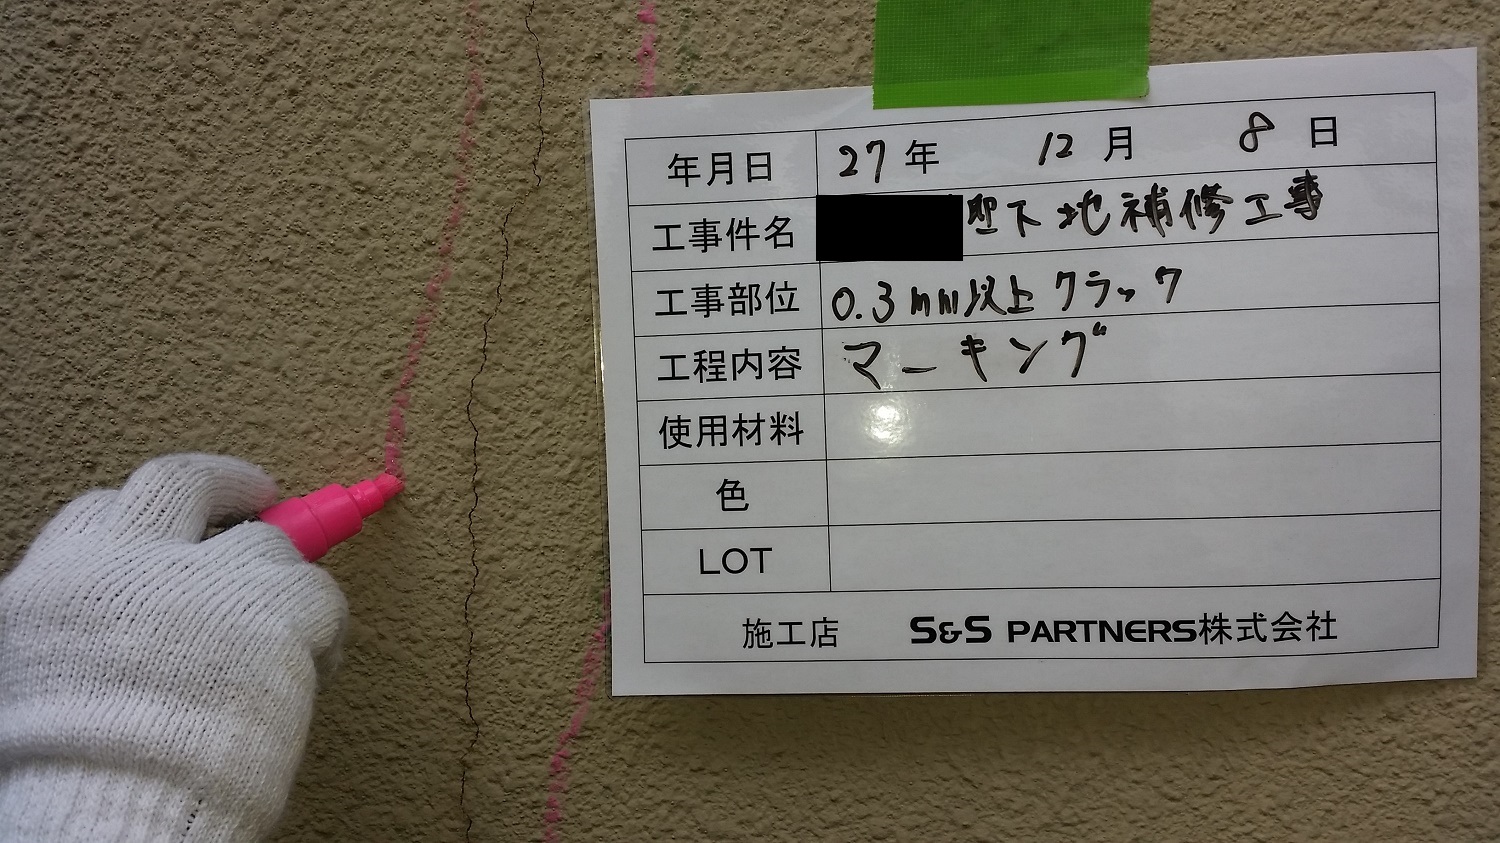 年月日 27年 12月 8日
工事件名 型下地補修工事
工事部位 0.3mm以上クラック
工程内容 マーキング
使用材料
色
LOT
施工店 S&S PARTNERS株式会社